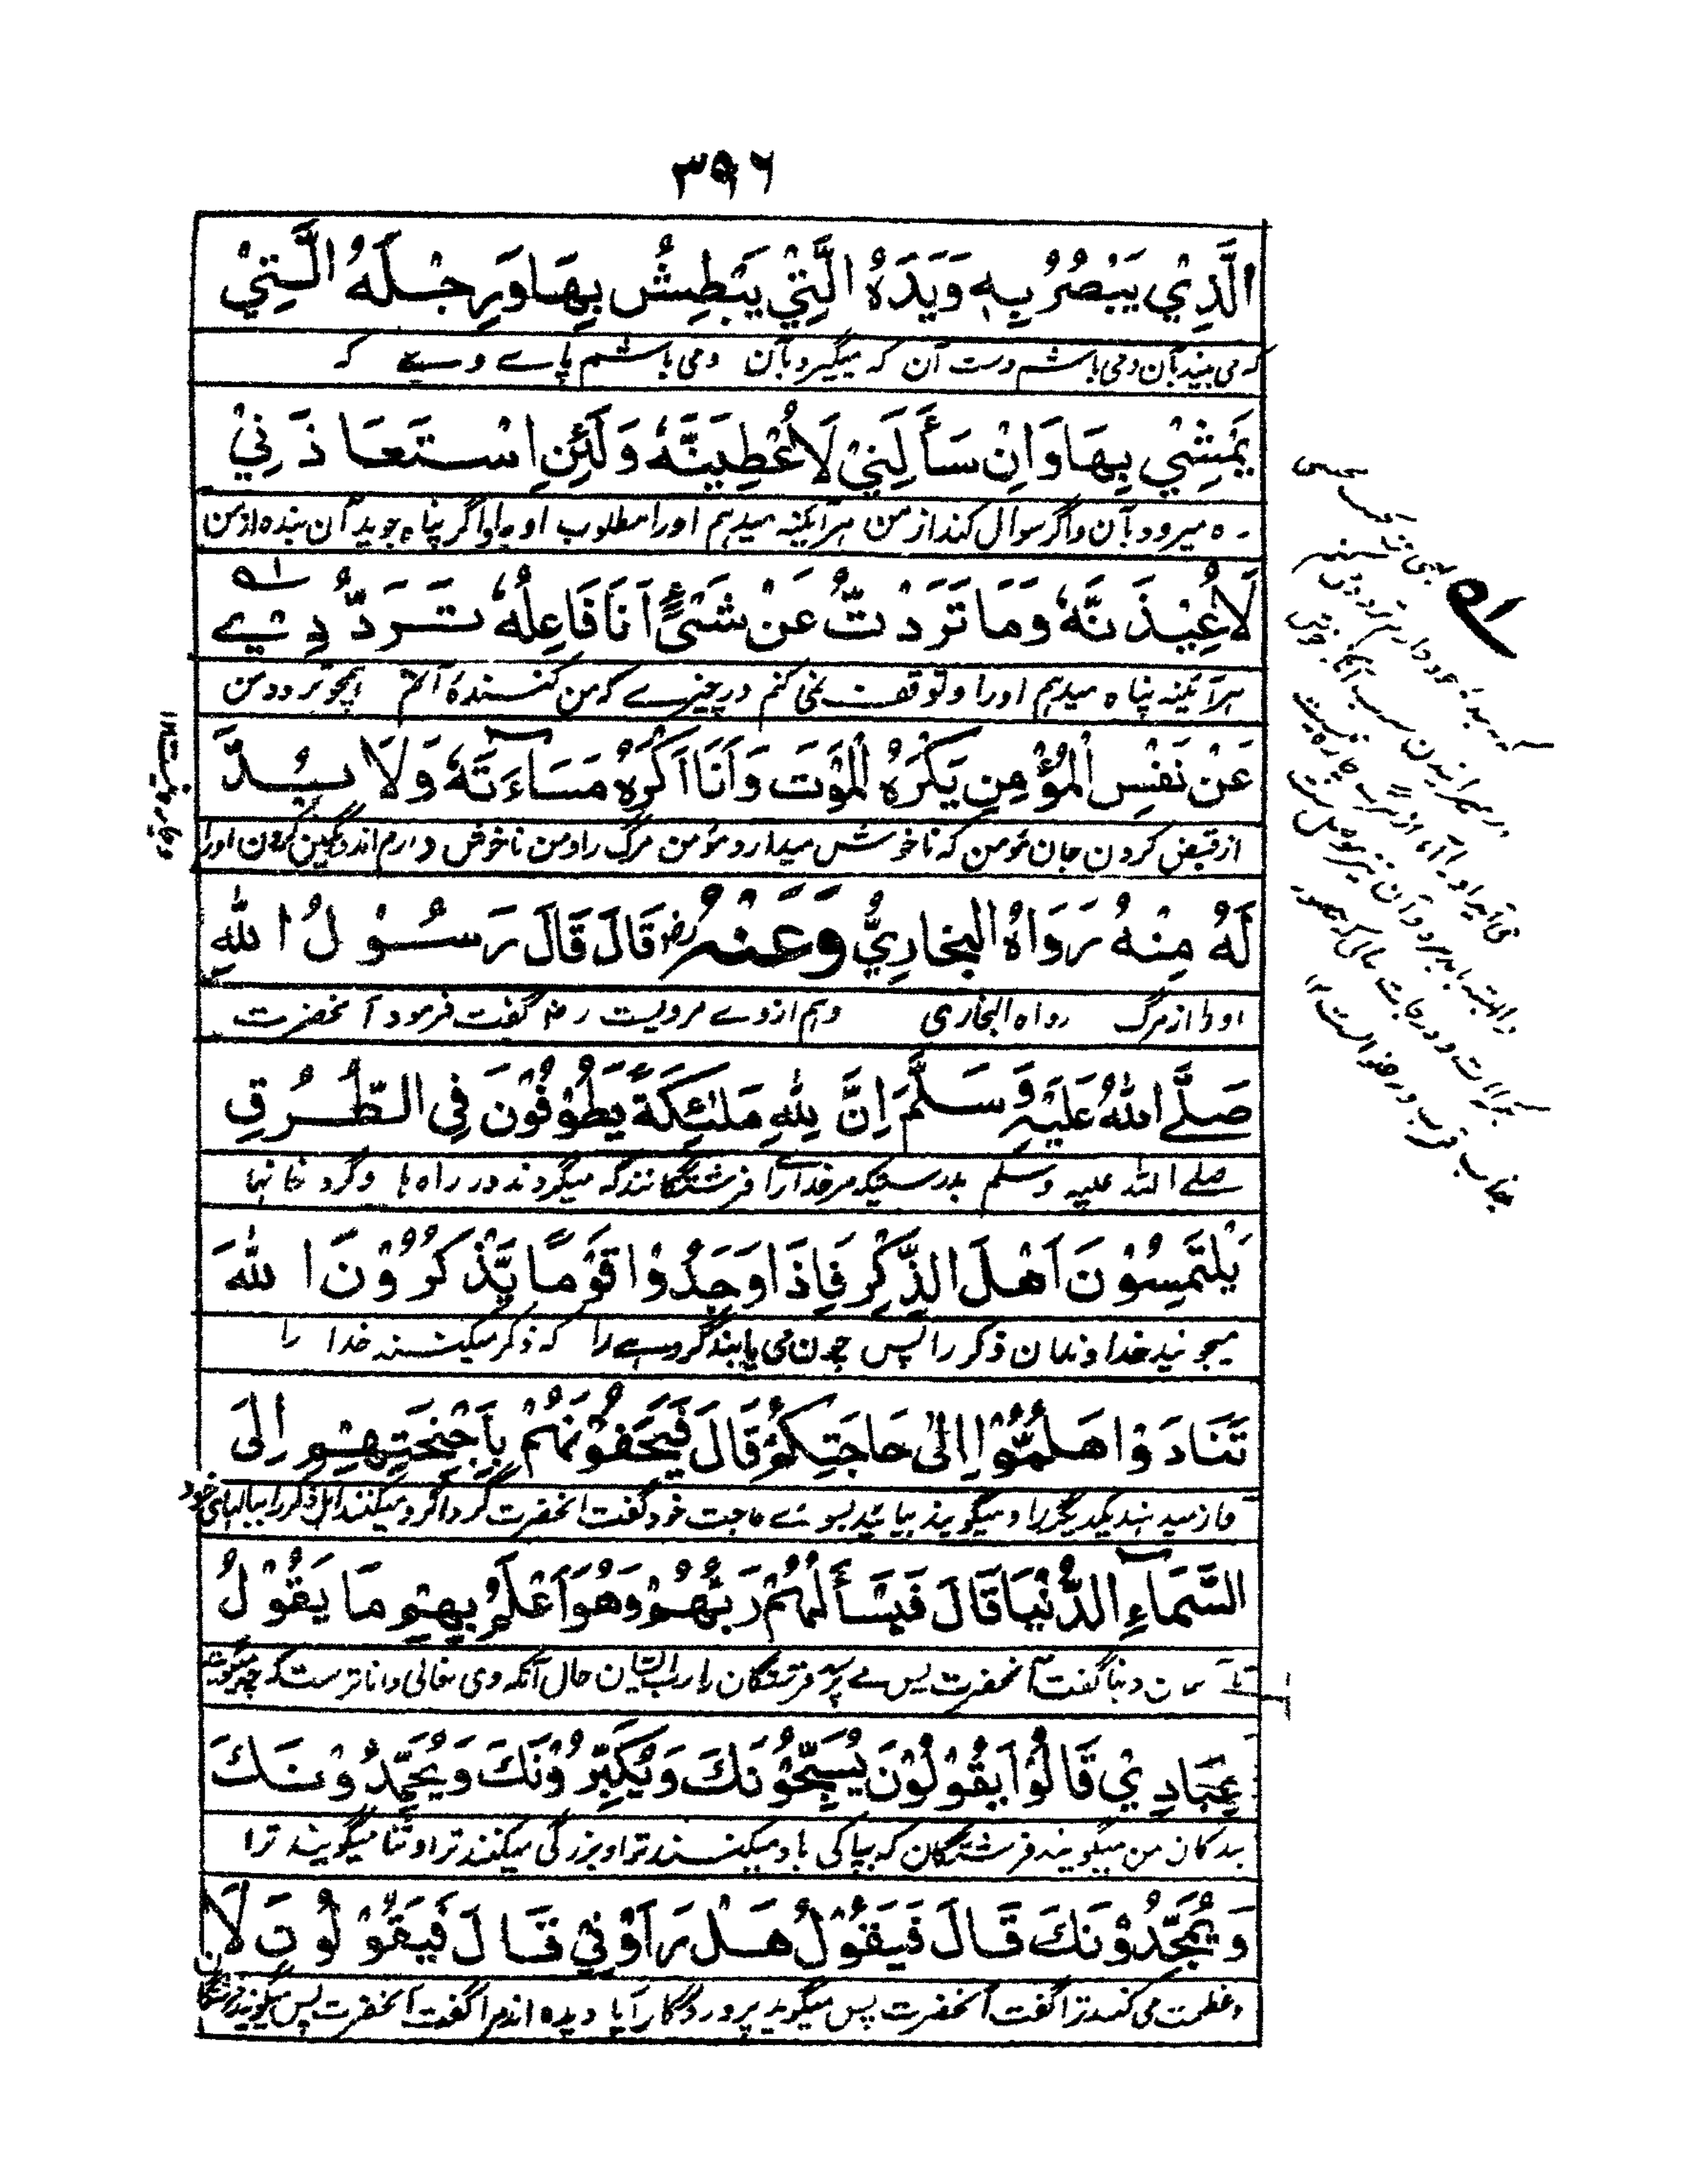 ۳۹۶
الَّذِيْ يَبْصُرُ بِهٖ وَيَدَهُ الَّتِيْ يَبْطِشُ بِهَا وَرِجْلَهُ الَّتِيْ
که می بیند بآن و می باشم دست آن که میگیرد بآن و می باشم پاے وے که
يَمْشِيْ بِهَا وَاِنْ سَأَلَنِيْ لَاُعْطِيَنَّهٗ وَلَئِنِ اسْتَعَاذَنِيْ
راه میرود بآن و اگر سوال کند از من هرآئینه میدهم او را مطلوب او و اگر پناه جوید آن بنده از من
لَاُعِيْذَنَّهٗ وَمَا تَرَدَّدْتُّ عَنْ شَيْءٍ اَنَا فَاعِلُهٗ تَرَدُّدِيْ
هرآئینه پناه میدهم او را و توقف نمی کنم در چیزے که من کننده آنم همچو تردد من
عَنْ نَفْسِ الْمُؤْمِنِ يَكْرَهُ الْمَوْتَ وَاَنَا اَكْرَهُ مَسَآءَتَهٗ وَلَا بُدَّ
از قبض کردن جان مؤمن که ناخوش میدارد مؤمن مرگ را و من ناخوش دارم اندوهگین کردن او را
لَهُ مِنْهُ رَوَاهُ البخارِيُّ وَعَنْهُ رض قَالَ قَالَ رَسُوْلُ اللهِ
او را از مرگ رواه البخاری و هم از وے مرویست رض گفت فرمود آنحضرت
صَلَّے اللهُ عَلَيْهِ وَسَلَّمَ اِنَّ لِلهِ مَلٰئِكَةً يَطُوْفُوْنَ فِي الطُّرُقِ
صلے الله علیه وسلم بدرستیکه مر خدایرا فرشتگانند که میگردند در راه ها و گرد خانها
يَلْتَمِسُوْنَ اَهْلَ الذِّكْرِ فَاِذَا وَجَدُوْا قَوْمًا يَّذْكُرُوْنَ اللهَ
میجویند خداوندان ذکر را پس چون می یابند گروهے را که ذکر میکنند خدا را
تَنَادَوْا هَلُمُّوْا اِلىٰ حَاجَتِكُمْ قَالَ فَيَحُفُّوْنَهُمْ بِاَجْنِحَتِهِمْ اِلَى
آواز میدهند یکدیگر را و میگویند بیائید بسوئے حاجت خود گفت آنحضرت گرداگرد میکنند اهل ذکر را ببالهای خود
السَّمَآءِ الدُّنْيَا قَالَ فَيَسْأَلُهُمْ رَبُّهُمْ وَهُوَ اَعْلَمُ بِهِمْ مَا يَقُوْلُ
تا آسمان دنیا گفت آنحضرت پس مے پرسد فرشتگان را رب ایشان حال آنکه وی تعالی داناترست که چه میگویند
عِبَادِيْ قَالُوْا يَقُوْلُوْنَ يُسَبِّحُوْنَكَ وَيُكَبِّرُوْنَكَ وَيُحَمِّدُوْنَكَ
بندگان من میگویند فرشتگان که بپاکی یاد میکنند ترا و بزرگی میکنند ترا و ثنا میگویند ترا
وَيُمَجِّدُوْنَكَ قَالَ فَيَقُوْلُ هَلْ رَاَوْنِيْ قَالَ فَيَقُوْلُوْنَ لَا
و عظمت می کنند ترا گفت آنحضرت پس میگوید پروردگار آیا دیده اند مرا گفت آنحضرت پس میگویند فرشتگان